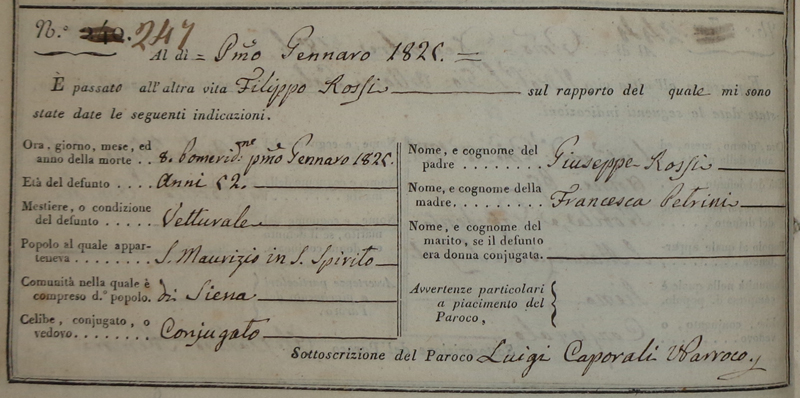 N.° 247
Al dì = Pmo Gennaro 1825. =
È passato all'altra vita Filippo Rossi sul rapporto del quale mi sono
state date le seguenti indicazioni.
Ora, giorno, mese, ed
anno della morte . . 8. Pomerid.ne pmo Gennaro 1825.
Età del defunto . . . . Anni 52.
Mestiere, o condizione
del defunto . . . . . Vetturale
Popolo al quale appar-
teneva . . . . . . . . S. Maurizio in S. Spirito
Comunità nella quale è
compreso d.° popolo. di Siena
Celibe, conjugato, o
vedovo . . . . . . . . Conjugato
Nome, e cognome del
padre . . . . . . . . Giuseppe Rossi
Nome, e cognome della
madre . . . . . . . . . Francesca Petrini
Nome, e cognome del
marito, se il defunto
era donna conjugata.
Avvertenze particolari
a piacimento del
Paroco,
Sottoscrizione del Paroco Luigi Caporali Parroco